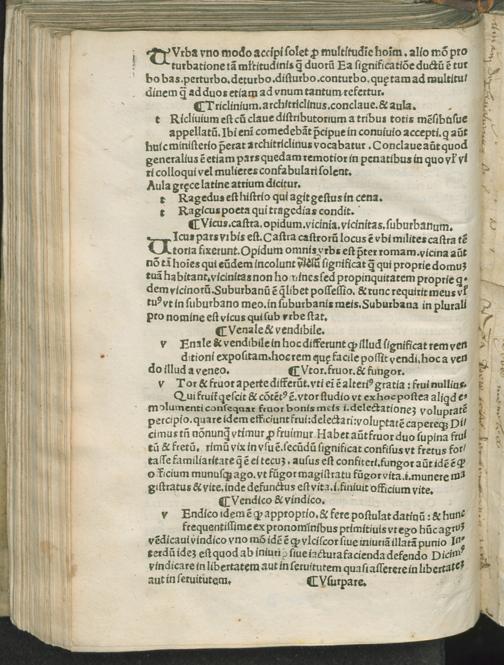 TVrba vno modo accipi solet ꝓ multitudīe hoīm, alio mō pro
turbatione tā mltitudinis q̄ duorū Ea significatiōe ductū ē tur
bo bas. perturbo. deturbo. disturbo. conturbo. quę tam ad multitu
dinem q̄ ad duos etiam ad vnum tantum refertur.
¶Triclinium. architriclinus. conclaue. & aula.
t Ricliuium est cū claue distributorium a tribus totis mēsibꝰ sue
appellatū. Ibi eni comedebāt p̄cipue in conuiuio accepti. q aūt
huic ministerio p̄erat architriclinus vocabatur. Conclaue aūt quod
generalius ē etiam pars quedam remotior in penatibus in quo vl' vi
ri colloqui vel mulieres confabulari solent.
Aula gręce latine atrium dicitur.
t Ragedus est histrio qui agit gestus in cena.
t Ragicus poeta qui tragedias condit.
¶Vicus. castra. opidum. vicinia. vicinitas. suburbanum.
VIcus pars vrbis est. Castra castrorū locus ē vbi milites castra tē
toria fixerunt. Opidum omnis vrbs est p̄ter romam. vicina aūt
nō tā hoīes qui eūdem incolunt significat q̄ qui proprie domuʒ
tuā habitant. vicinitas non homines sed propinquitatem proprie q̄
dem vicinorū. Suburbanū ē q̄libet possessio. & tunc requirit meus vl'
tuꝰ vt in suburbano meo. in suburbanis meis. Suburbana in plurali
pro nomine est vicus qui sub vrbe stat.
¶Venale & vendibile.
v Enale & vendibile in hoc differunt ꝙ illud significat rem ven
ditioni expositam. hoc rem quę facile possit vendi. hoc a ven
do illud a veneo. ¶Vtor. fruor. & fungor.
v Tor & fruor aperte differūt. vti ei ē alteriꝰ gratia : frui nullius.
Qui fruit q̄escit & cōtētꝰ ē. vtor studio vt ex hoc postea aliqd e-
molumenti consequar fruor bonis meis .i. delectationeʒ voluptatē
percipio. quare idem efficiunt frui: delectari: voluptatē capereqʒ Di
cimus tn̄ nōnunq̄ vtimur ꝓ fruimur. Habet aūt fruor duo supina frui
tū & fretū. rimū vix in vsu ē. secūdū significat confisus vt fretus for
tasse familiaritate q̄ ē ei tecuʒ. ausus est confiteri. fungor aūt idē ē ꝙ
officium munusqʒ ago. vt fūgor magistratu fūgor vita .i. munere ma
gistratus & vite. inde defunctus est vita .i. finiuit officium vite.
¶Vendico & vindico.
v Endico idem ē ꝙ approptio. & fere postulat datiuū : & hunc
frequentissime ex pronominibus primitiuis vt ego hūc agrūʒ
vēdicaui vindico vno mō idē ē ꝙ vlciscor siue iniuriā illatā punio In-
terdū ideʒ est quod ab iniuria siue iactura facienda defendo Dicimꝰ
vindicare in libertatem aut in seruitutem quasi asserere in libertateʒ
aut in seruitutem. ¶Vsurpare.